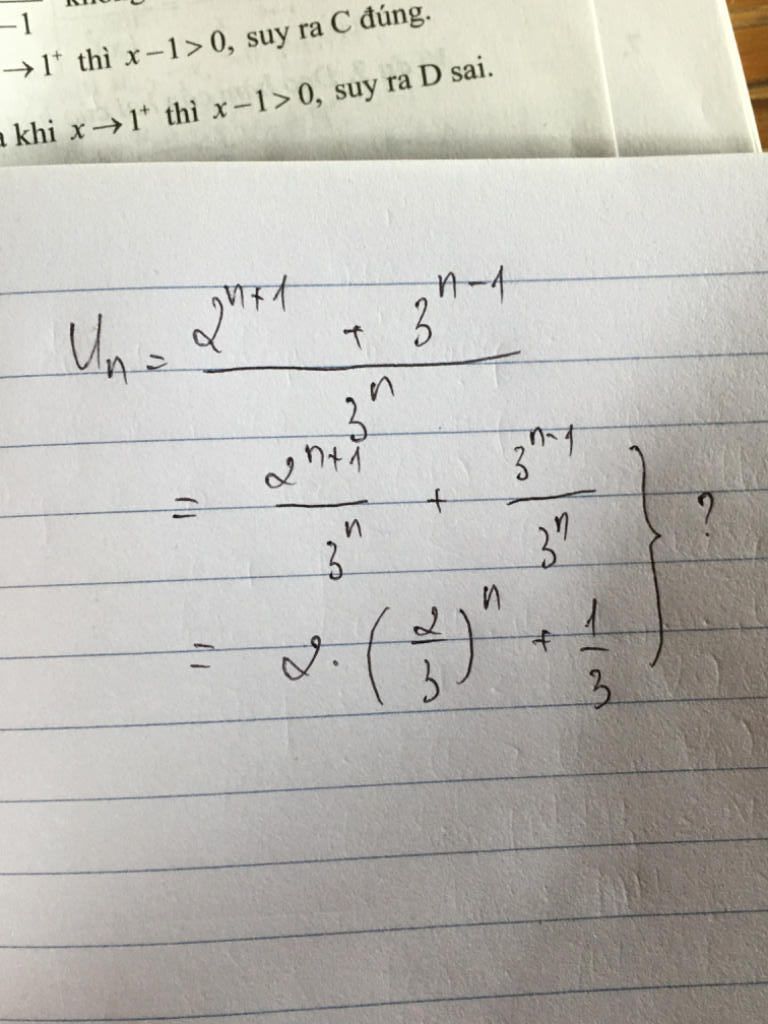 −1
→1⁺ thì x−1>0, suy ra C đúng.
khi x→1⁺ thì x−1>0, suy ra D sai.
Uₙ = (2^(n+1) + 3^(n−1)) / 3^n
= 2^(n+1) / 3^n + 3^(n−1) / 3^n } ?
= 2 · (2/3)^n + 1/3